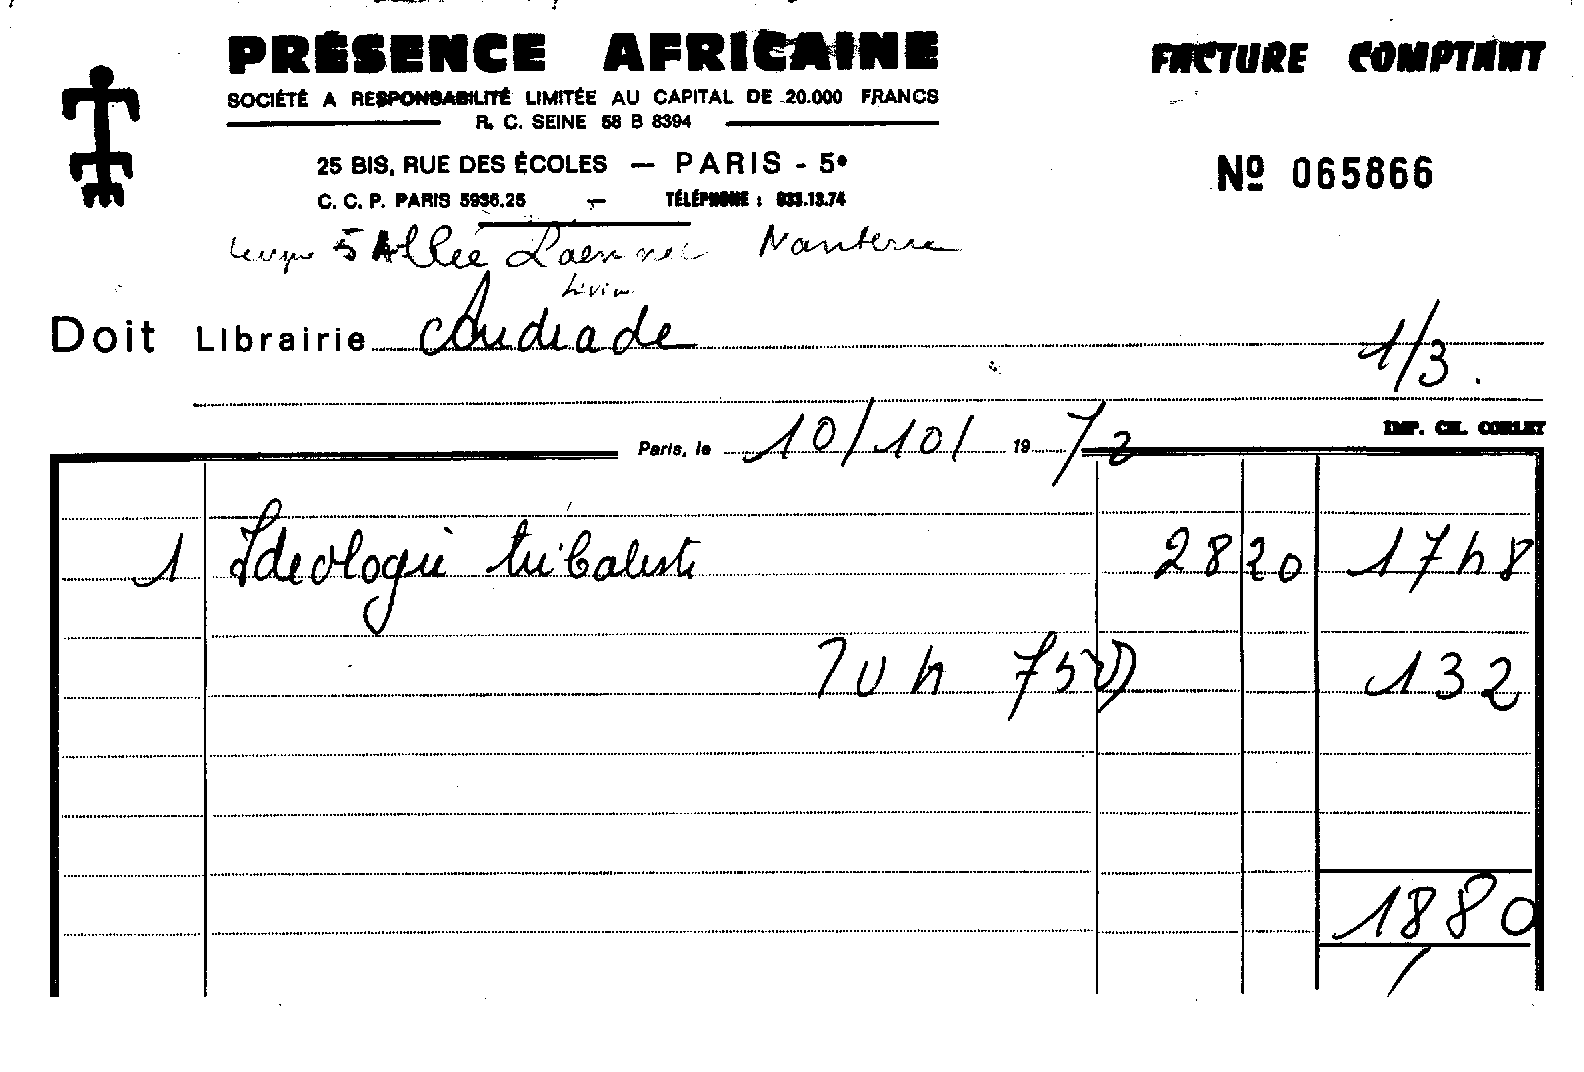 PRÉSENCE AFRICAINE
FACTURE COMPTANT
SOCIÉTÉ A RESPONSABILITÉ LIMITÉE AU CAPITAL DE 20.000 FRANCS
R. C. SEINE 58 B 8394
25 BIS, RUE DES ÉCOLES — PARIS - 5e
Nº 065866
C. C. P. PARIS 5936.25 — TÉLÉPHONE : 033.13.74
5 Allée Laennec Nanterre
Doit Librairie Andrade
1/3.
IMP. CH. CORLET
Paris, le 10/10/ 1972
1 Ideologie tribaliste 28 20 17 48
TVA 7 50 132
1880